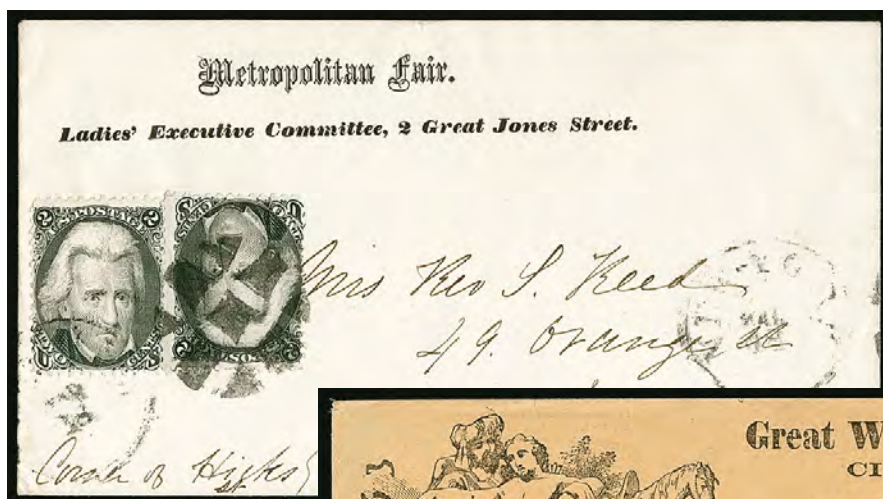 Metropolitan Fair.
Ladies' Executive Committee, 2 Great Jones Street.
U.S. POSTAGE
Mrs Rev S. Reed
49. Orange st
Corner of Hicks
st
Great W
CI